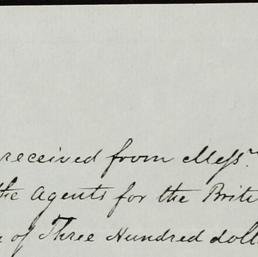 received from Mess.rs
the Agents for the Briti
of Three Hundred doll